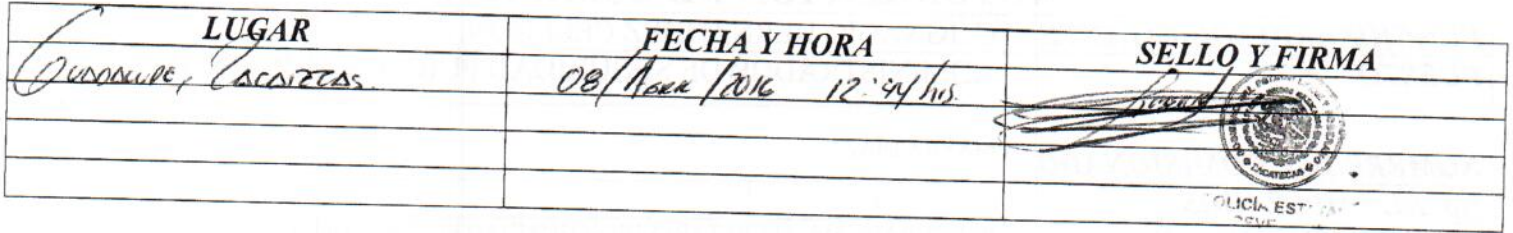 LUGAR FECHA Y HORA SELLO Y FIRMA
Guadalupe, Zacatecas. 08/Abril/2016 12:44 hrs.
ZACATECAS